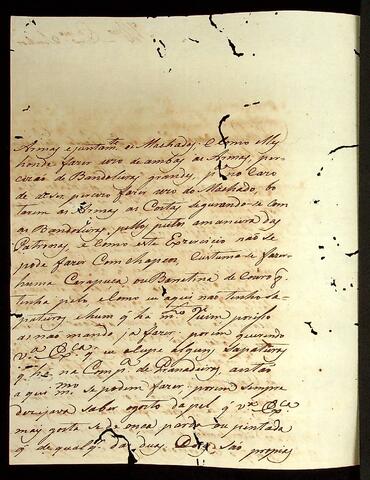 Armas ejuntam.te os Machados, e Como elles
hande fazer uzo de ambas as Armas, per-
cizão de Bandoleiras grandes, p.a no Cazo
de ser percizo fazer uzo do Machado, bo
tarem as Armas as Costas segurando-se com
as Bandoleiras, pellos peitos amaneira das
Patronas, e Como este Exercicio não se
pode fazer Com chapeos, Custuma-se fazer
huma Carapuça ou Barretina de Couro q.
tinha pelo, e Como eu aqui não tenho Sa-
pateiros, e hum q. ha m.to Ruim porisso
as não mando ja fazer, porém querendo
V.a Ex.ca q. eu ocupe algum Sapateiro
q. ha na Comp.a de Granadeiros, então
aqui mmo se podem fazer, porem sempre
dezejava saber ogosto da pel q. V.a Ex.ca
mais gosta se de onca parda ou pintada
q. de qualq.r das duas são proprias